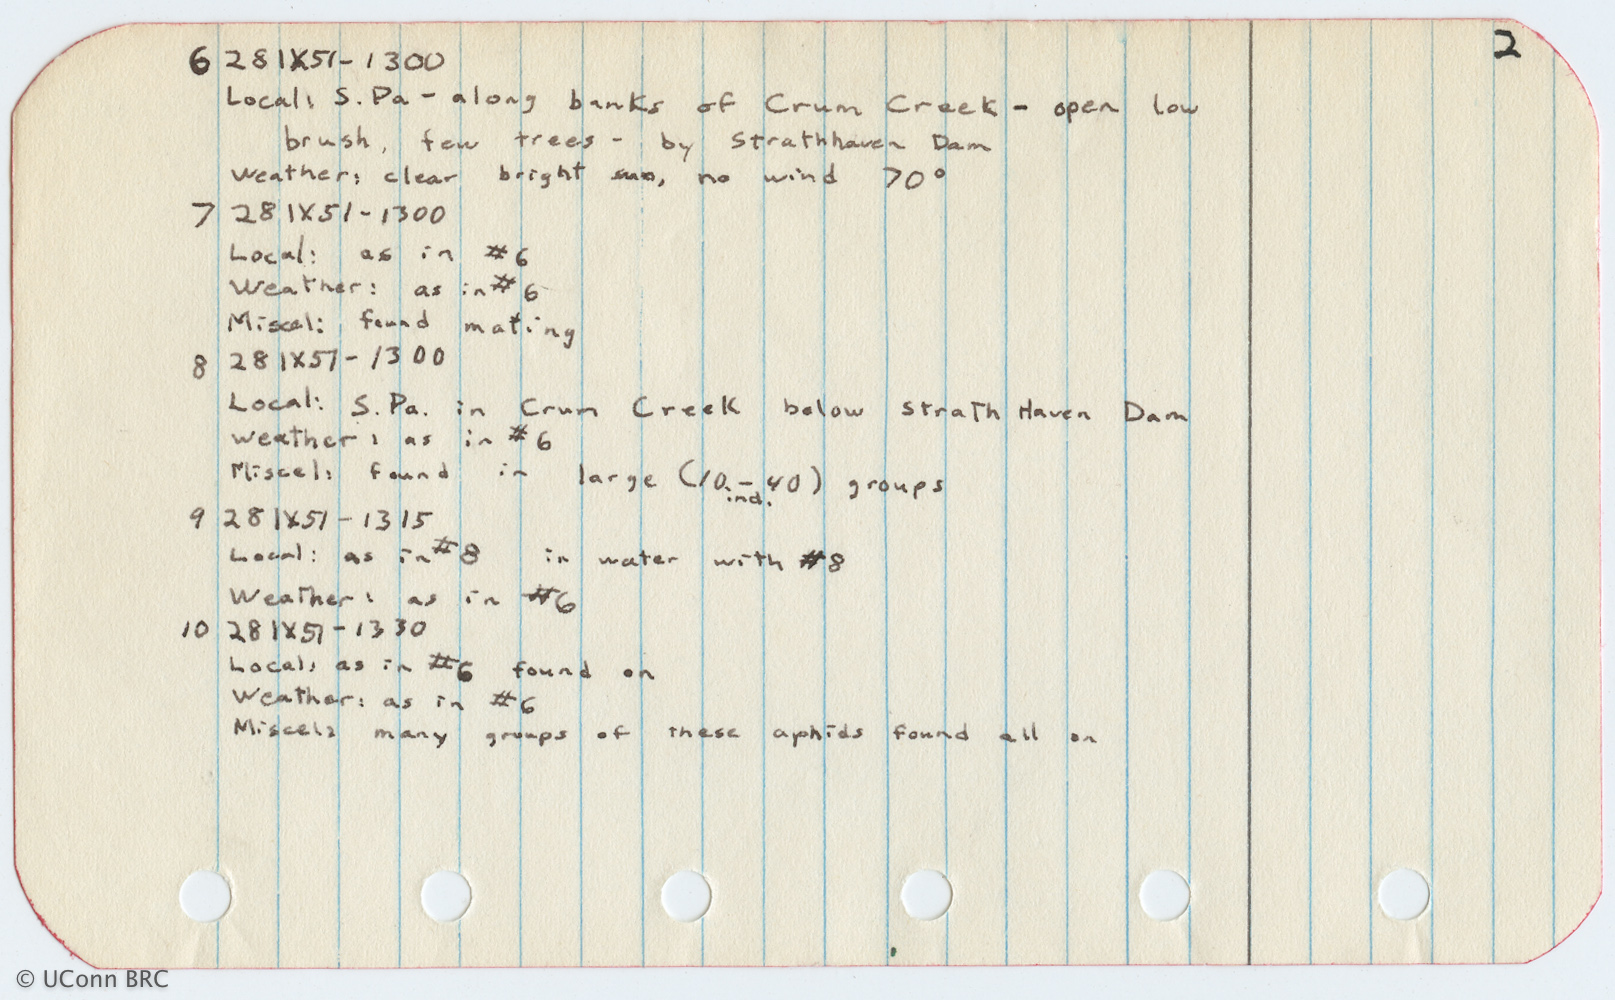 2
6 28IX51-1300
Local: S. Pa - along banks of Crum Creek - open low
brush, few trees - by Strathhaven Dam
Weather: clear bright sun, no wind 70°
7 28IX51-1300
Local: as in #6
Weather: as in #6
Miscel: found mating
8 28IX51-1300
Local: S. Pa. in Crum Creek below Strath Haven Dam
Weather: as in #6
Miscel: found in large (10-40) groups
ind.
9 28IX51-1315
Local: as in #8 in water with #8
Weather: as in #6
10 28IX51-1330
Local: as in #6 found on
Weather: as in #6
Miscel: many groups of these aphids found all on
© UConn BRC